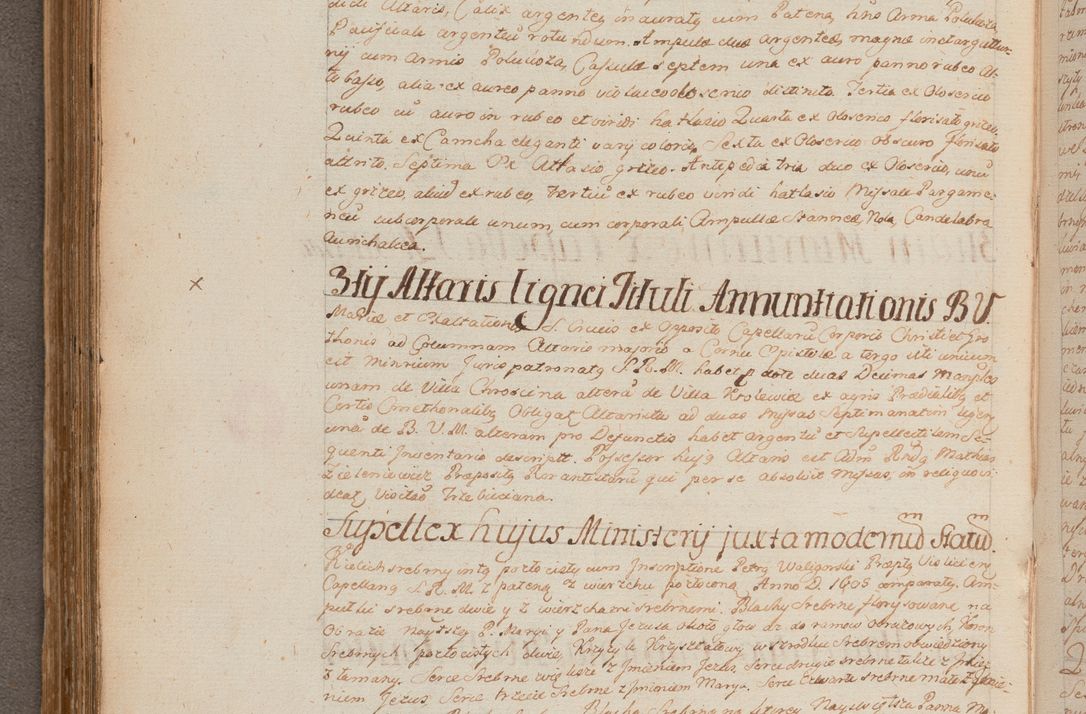 didi Altaris, Calix argenteg inauratg cum Patena, hñs Arma Poluboza,
Pacificale argenteũ rotundum. Ampulæ duæ argenteæ, magnæ
nÿ cum Armis Poluboza, Casulæ septem una ex auro panno rubeo Al-
to basso, alia ex aureo panno violaceo oloserico distincta. Tertia ex Oloserico
rubeo cũ auro in rubeo et viridi hatlasio Quarta ex Oloserico florisato griseo,
Quinta ex Camcha eleganti varÿ coloris, Sexta ex Oloserico obscuro florisato
attrito. Septima Ex Atlasio griseo. Antepedia tria duo ex Oloserico, unũ
ex griseo, aliud ex rubeo, Tertiũ ex rubeo viridi hatlasio Missale Pargame-
neũ subcorporale unum, cum corporali Ampullæ Stanneæ, Nola, Candelabra
Aurichalcea.
3tÿ Altaris lignei Tituli Annuntiationis B V.
Mariæ et Exaltationis S. Crucis ex Opposito Capellarũ Corporis Christi et Gro-
thonis ad Columnam Altaris majoris a Cornu Epistolæ a tergo isti unicum
est Ministerium Juris patronatg S. R. M. habet p dote duas Decimas Manples
unam de Villa Chroscina alterã de Villa Krolewice ex agris Prædialibg et
Certis Cmethonalibg Obligat Altarista ad duas Myssas Septimanatim legen.
unã de B. V. M. alteram pro Defunctis habet argentũ et Supellectilem Se-
quenti Inventario descriptt. Possessor hujg Altaris est Adm Rndg Mathias
Zieleniewicz Præpositg Rorantistarũ qui per se absolvit Myssas, in reliquo vi-
deat, Visitao Trzebiciana.
Supellex hujus Ministerÿ juxta modernũ Statũ.
Kielich srebrny intg pozłocisty cum Inscriptione Petrg Waligorski Præptg Vieliciens
Capellang S. R. M. z pateną z wierzchu pozłocona, Anno D. 1605 comparatg, Am-
pułki srebrne dwie y z wierzchami srebrnemi. Blachy Srebrne florysowane na
Obrazie Nayśstg P. Maryi y Pana Jezusa około głow dr do ramow obrazowych, Koron
Srebrnych pozłocistych dwie, Krzyzyk Krzyształowy w srzodku Srebrem obwiedziony
złamany. Serce Srebrne wielksze z Jmieniem Jezus, Serce drugie srebrne takze z Jmie-
niem Jezus, Serce trzecie Srebrne z Jmieniem Marya. Serce Czwarte srebrne małe z Jmie-
Blacha Srebrna Nayświętsza Panna Ma-